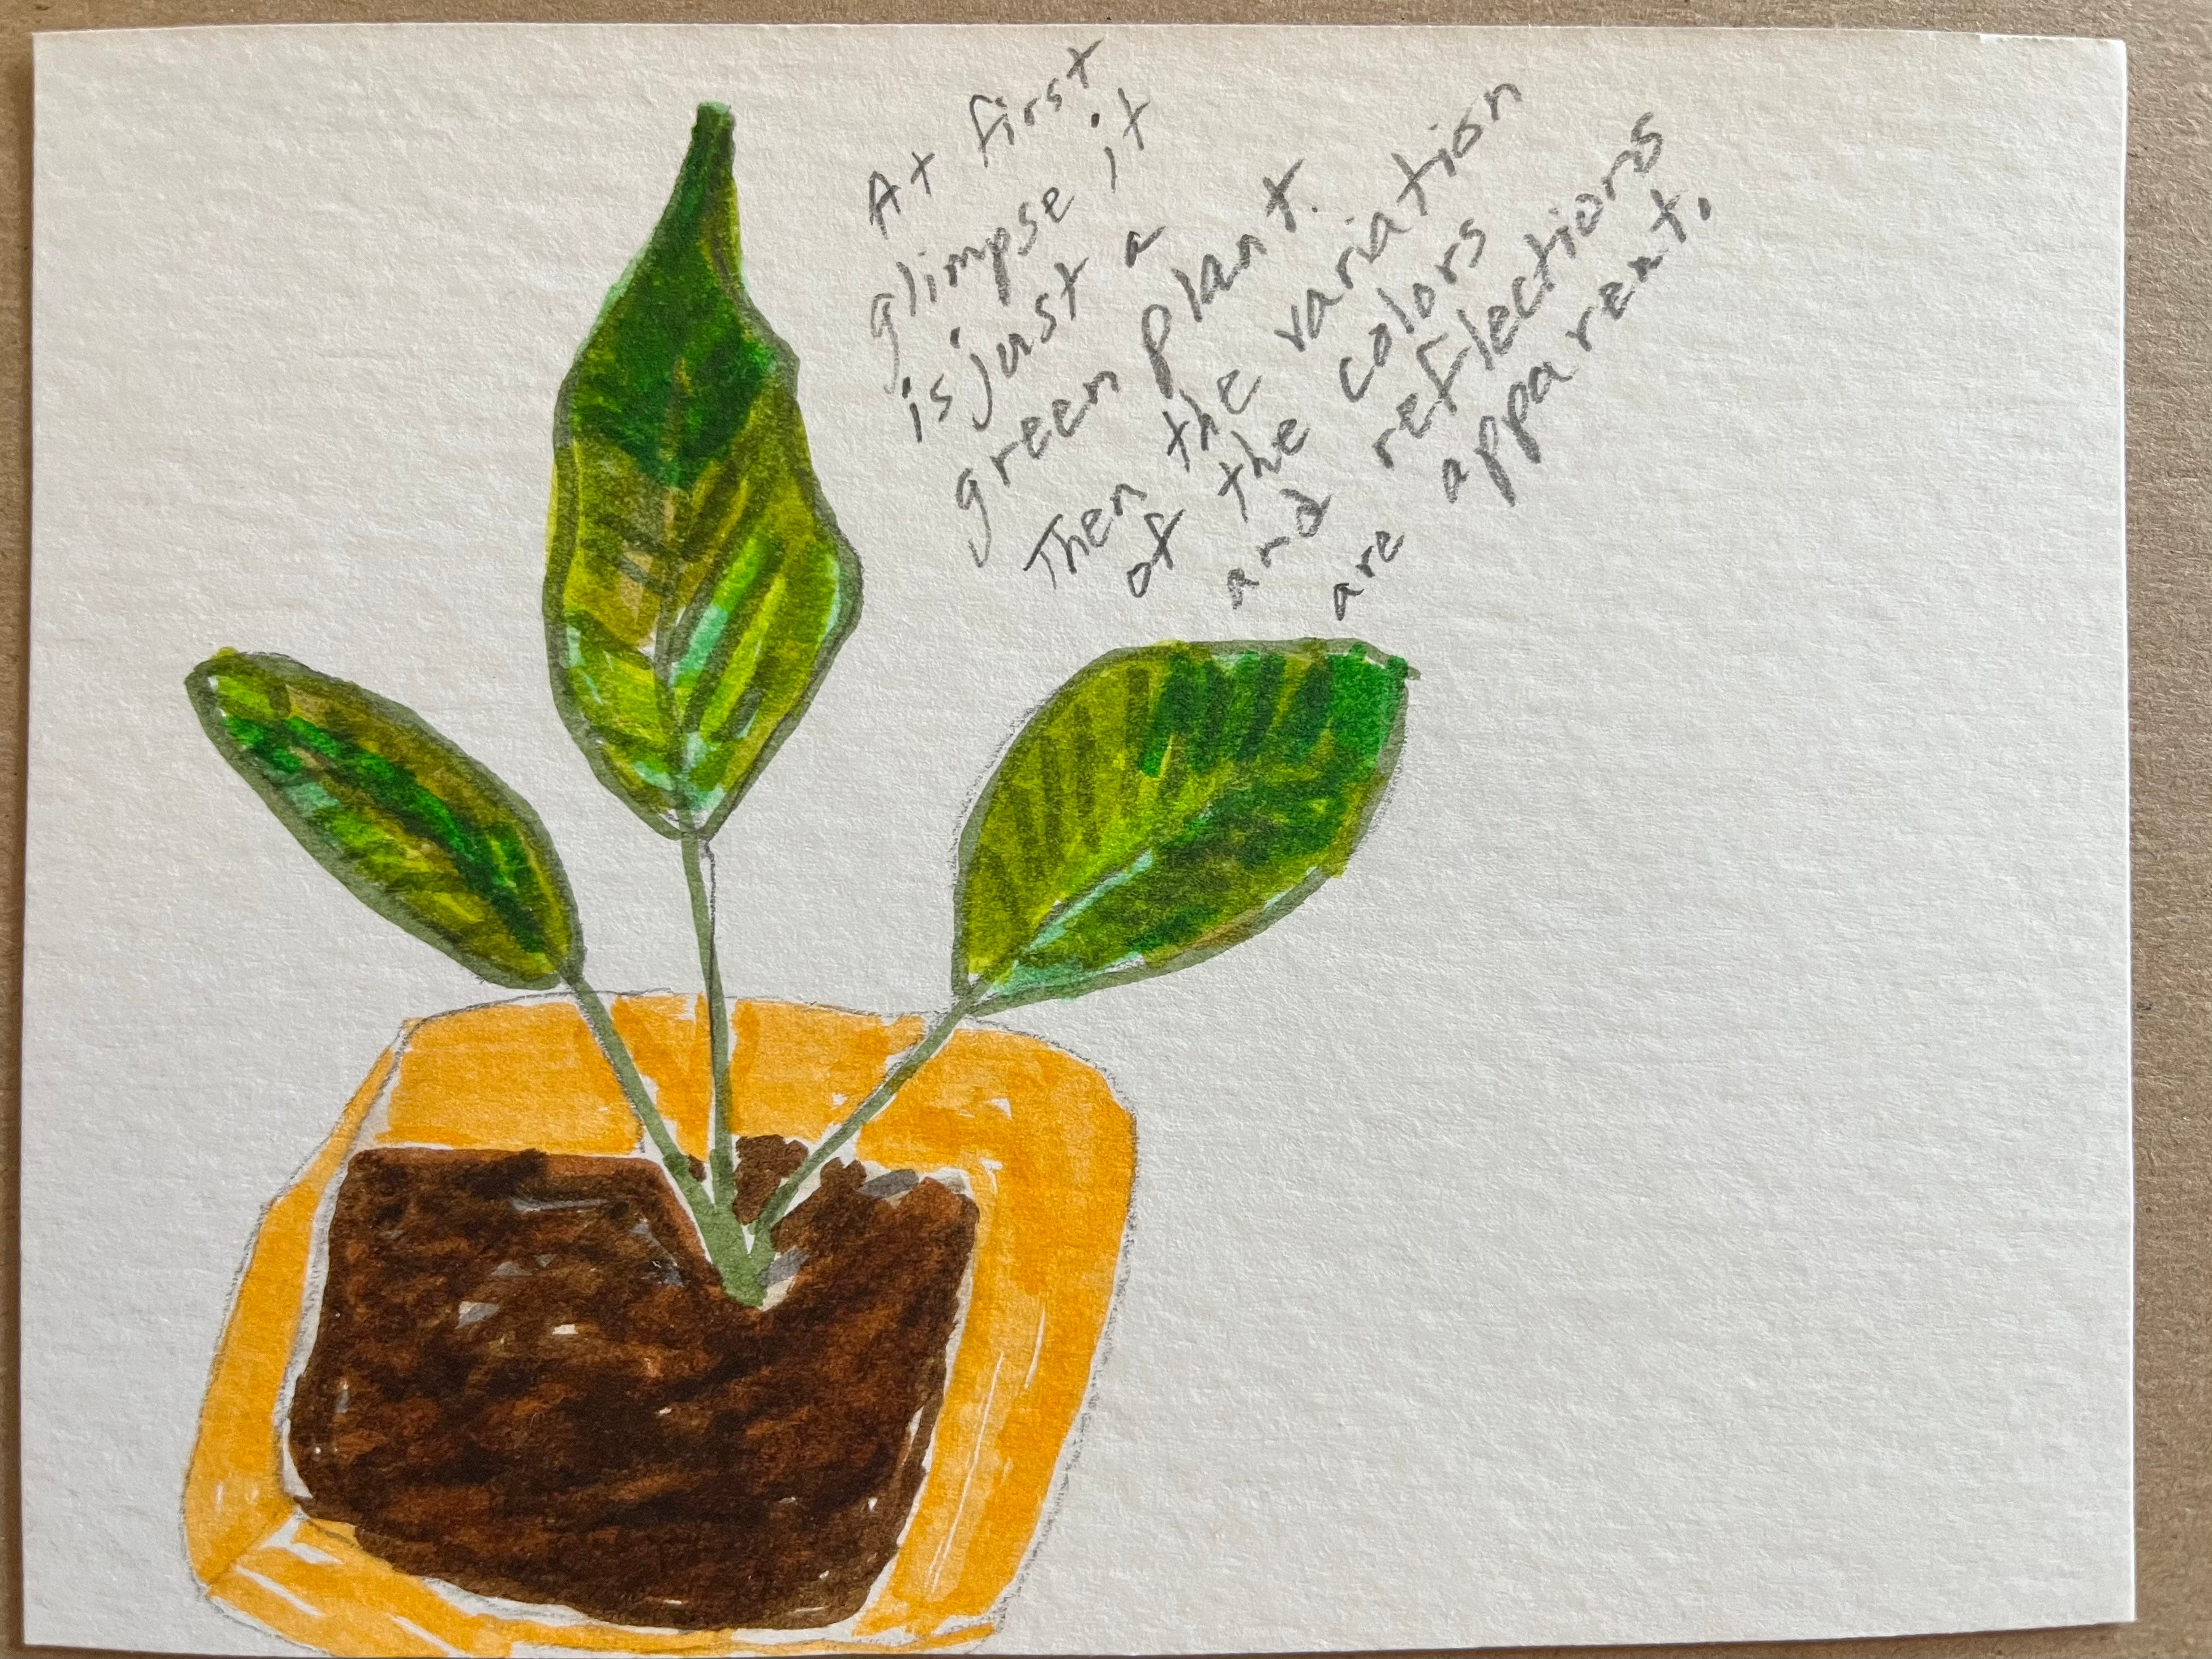 At first
glimpse it
is just a
green plant.
Then the variation
of the colors
and reflections
are apparent.